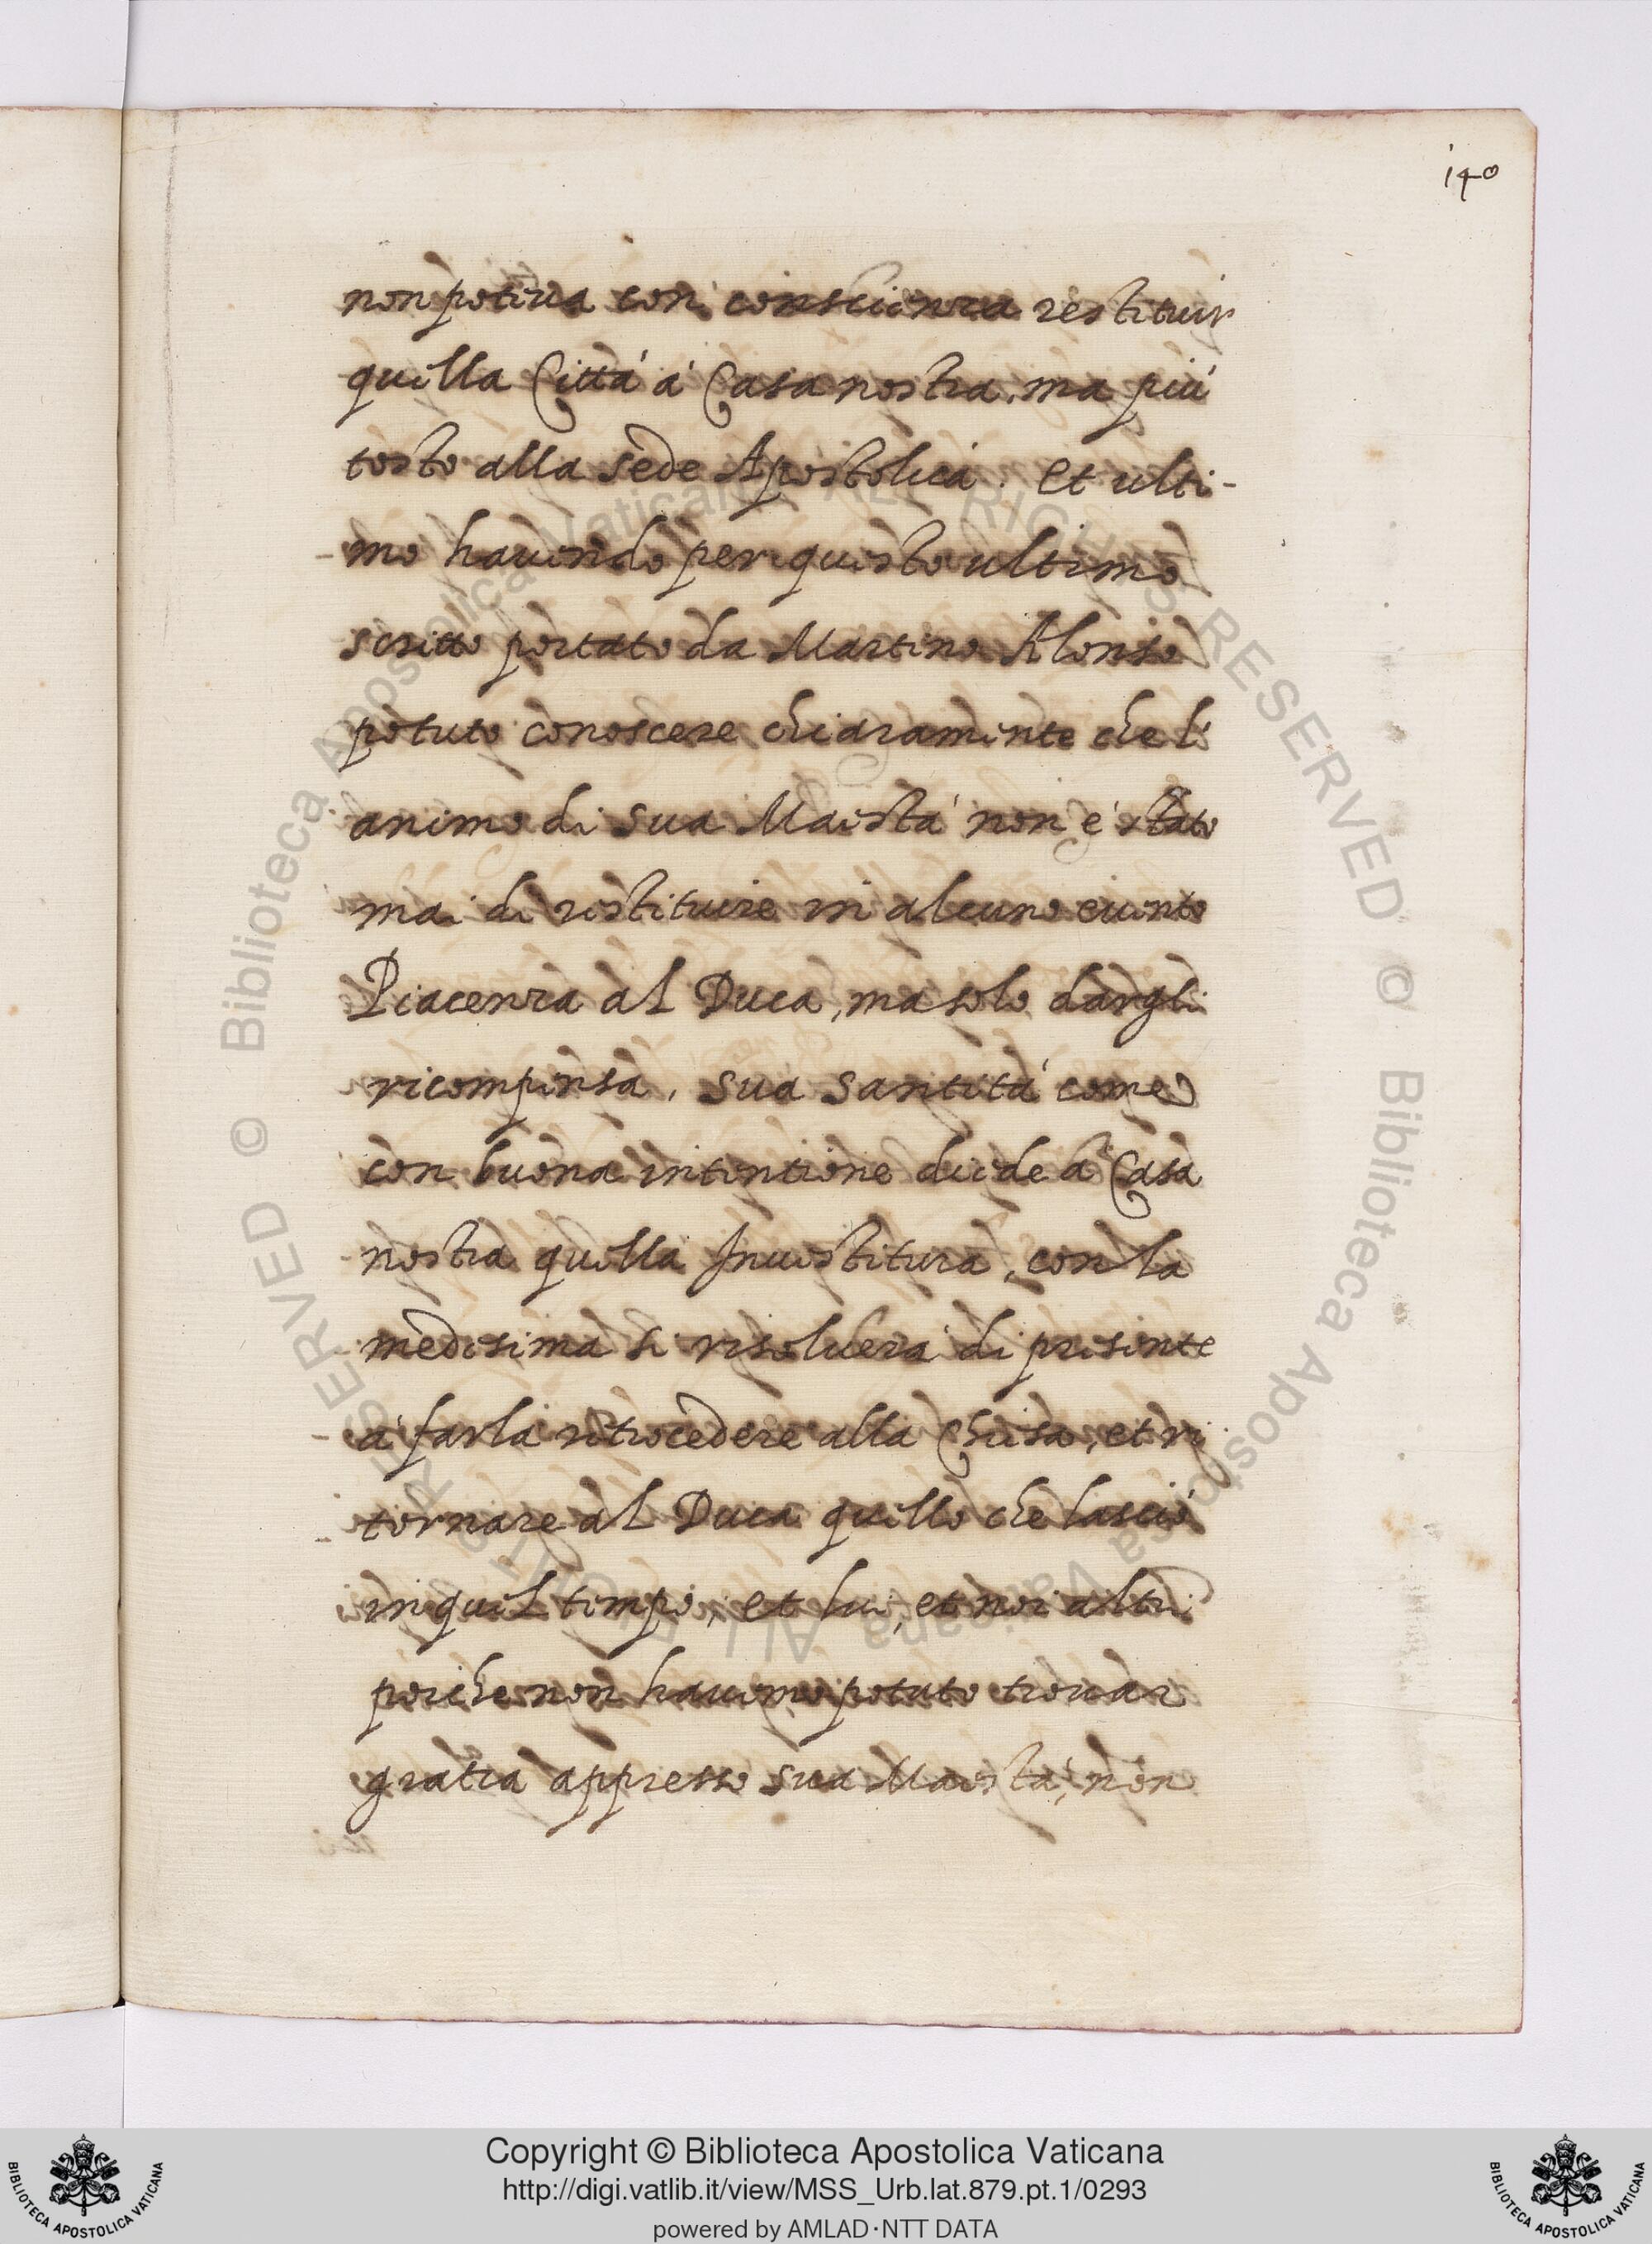 140
non poteua con conscienza restituir
quella Città à Casa nostra, ma più
tosto alla sede Apostolica. Et ulti-
mo hauendo per questo ultimo
scritto portato da Martino Alonso
potuto conoscere chiaramente che l'
animo di sua Maestà non è stato
mai di restituire in alcuno euento
Piacenza al Duca, ma solo dargli
ricompensa, sua santità come
con buona intentione diede à Casa
nostra quella Inuestitura, con la
medesima si risoluerà di presente
à farla retrocedere alla Chiesa, et ri
tornare al Duca quello che lasciò
in quel tempo, et lui, et noi altri
poiche non hauemo potuto trouar
gratia appresso sua Maestà, non
© Biblioteca Apostolica Vaticana ALL RIGHTS RESERVED © Biblioteca Apostolica Vaticana ALL RIGHTS RESERVED
Copyright © Biblioteca Apostolica Vaticana
http://digi.vatlib.it/view/MSS_Urb.lat.879.pt.1/0293
powered by AMLAD·NTT DATA
BIBLIOTECA APOSTOLICA VATICANA
BIBLIOTECA APOSTOLICA VATICANA